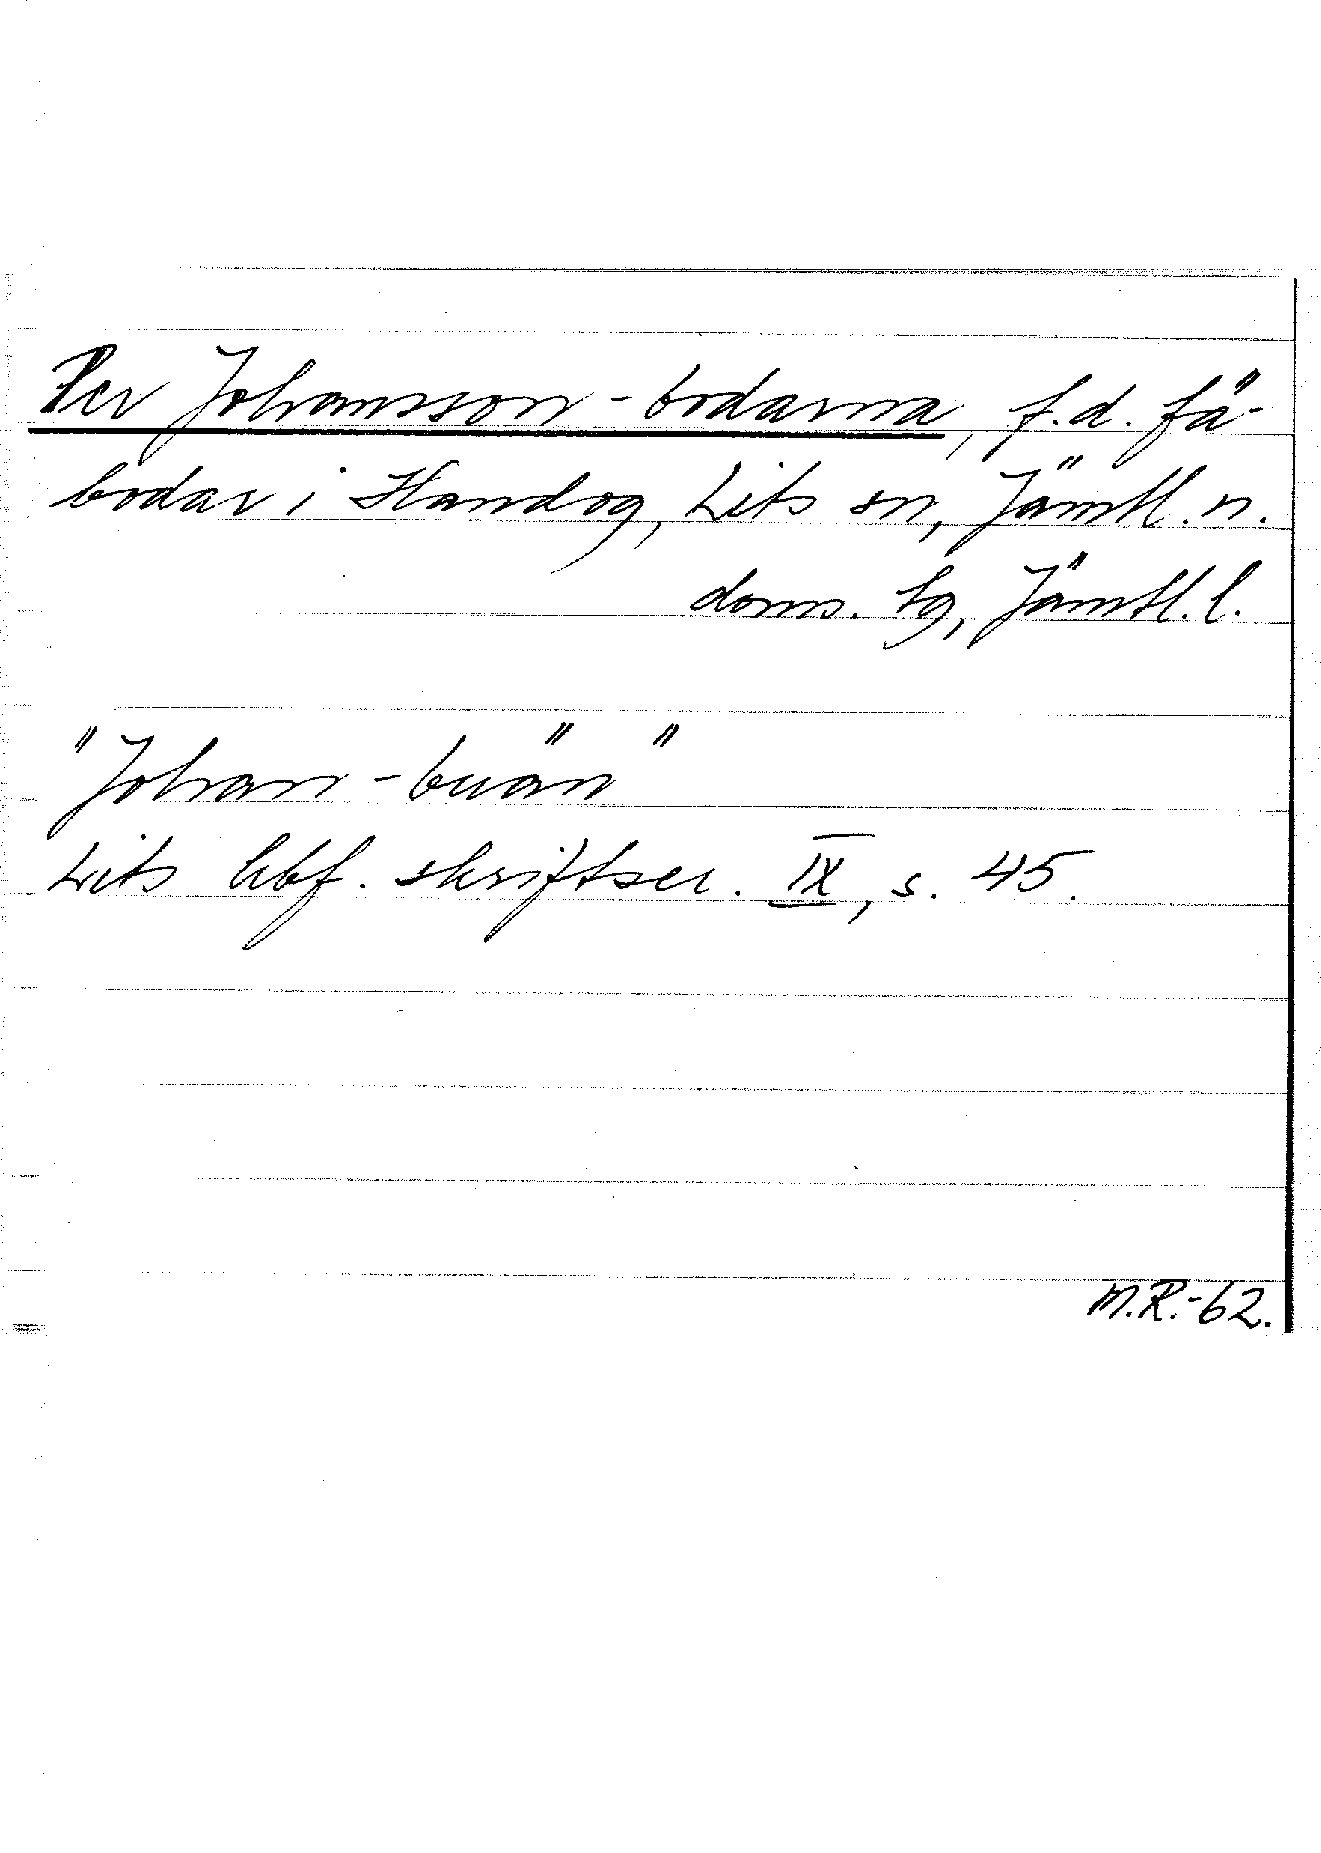 Per Johansson-bodarna, f.d. fä-
bodar i Handog, Lits sn, Jämtl. n.
doms. tg, Jämtl. l.
"Johan-buän"
Lits hbf. skriftser. IX, s. 45.
M.R.-62.